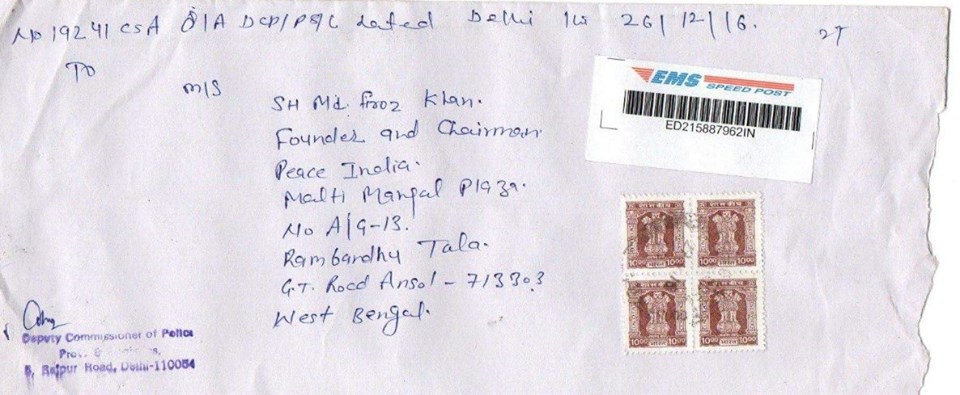 No 19241 CSA O/A DCP/P&L dated Delhi the 26/12/16.
To
M/S
SH Md. Firoz Khan.
Founder and Chairman
Peace India.
Malti Mangal Plaza.
No A/G-13.
Rambandhu Tala.
G.T. Road Ansol - 713303
West Bengal.
EMS
SPEED POST
ED215887962IN
1000 1000
1000 1000
Deputy Commissioner of Police
5, Rajpur Road, Delhi-110054